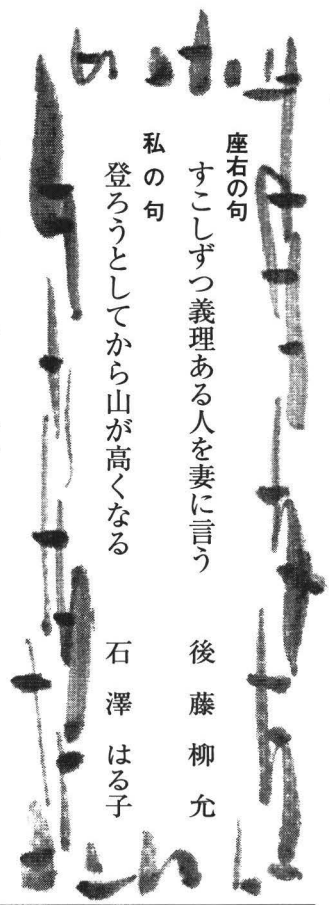 座右の句
すこしずつ義理ある人を妻に言う　後藤柳允
私の句
登ろうとしてから山が高くなる　石澤はる子